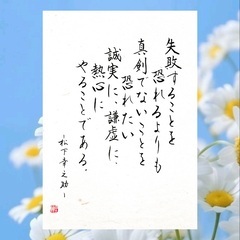 失敗することを
恐れるよりも
真剣でないことを
恐れたい
誠実に、謙虚に、
熱心に
やることである。
-松下幸之助-